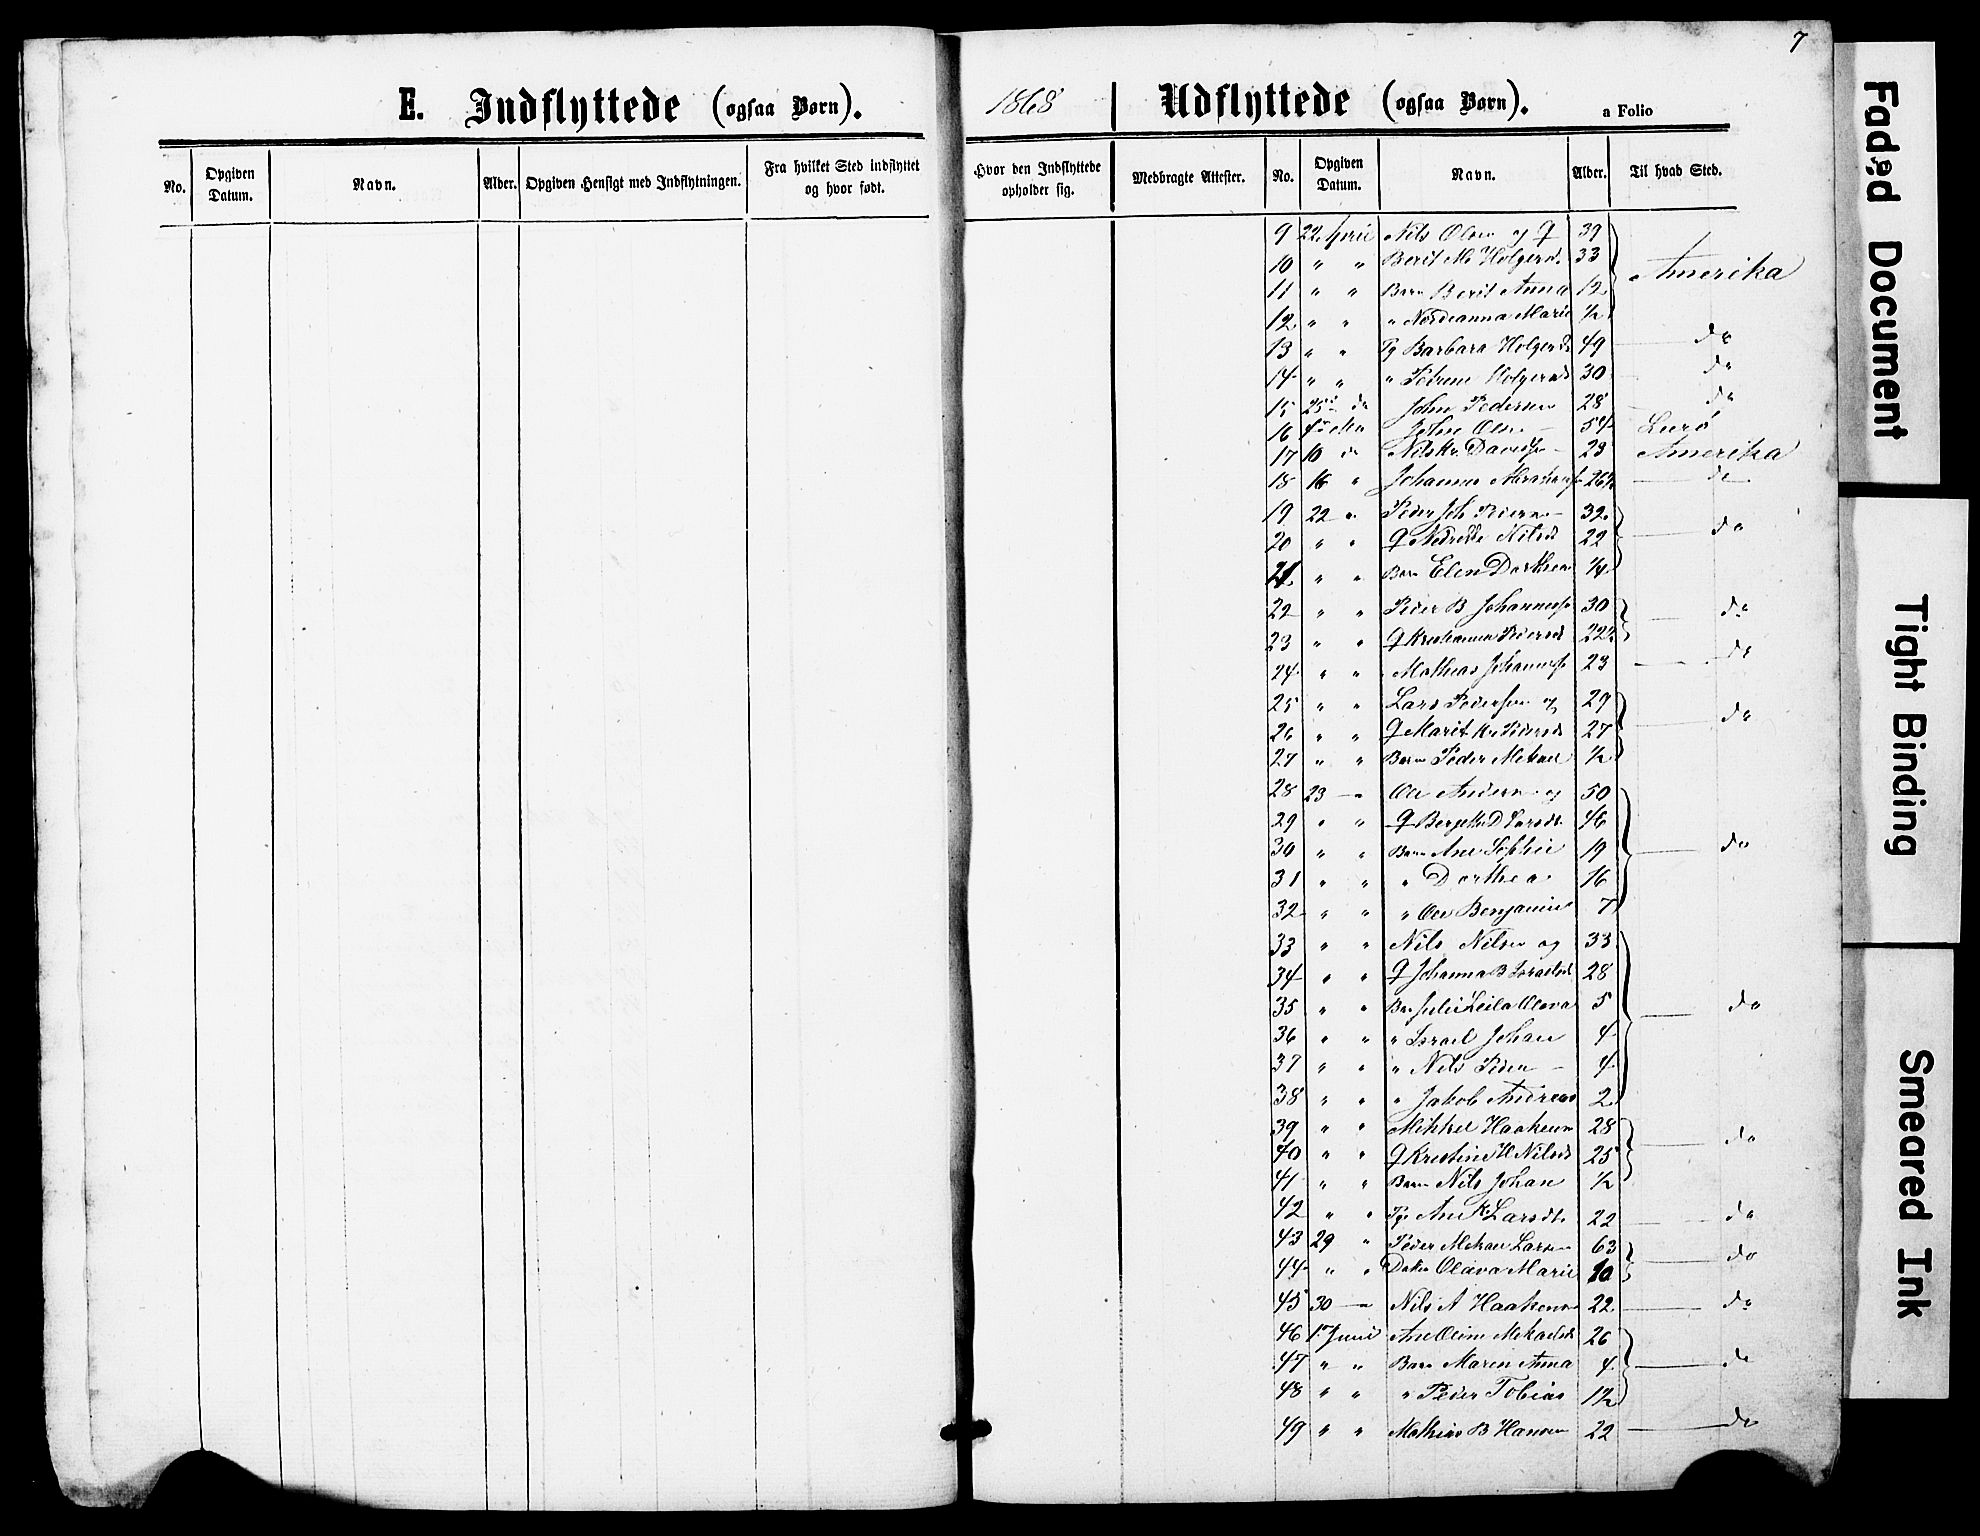 7
E. Indflyttede (ogsaa Børn).
1868 Udflyttede (ogsaa Børn). a Folio
No. Opgiven Datum. Navn. Alder. Opgiven Hensigt med Indflytningen. Fra hvilket Sted indflyttet og hvor født.
Hvor den Indflyttede opholder sig. Medbragte Attester. No. Opgiven Datum. Navn. Alder. Til hvad Sted.
9 22 April Nils Olsen og Q 39
10 " " Berit M Holgersd. 33 Amerika
11 " " Barn Berit Anna 12
12 " " " Nordianna Marie ½
13 " " Pg Barbara Holgersd 49 do
14 " " " Holgersd 30 do
15 25 do John Pedersen 28 do
16 John Olsen 54 Lurö
17 10 do Nils Kr. Davids 23 Amerika
18 16 " Johannes do
19 22 " Peder Joh 32
20 " " Q Nilsd 22 do
21 " " Barn Elen Dorthea ¼
22 " " Peder B Johannes 30 do
23 " " Q
24 " " Mathias Johannes 23 do
25 " " Lars Pedersen og 29
26 " " Q Marit Kr Pedersd 27 do
27 " " Barn Peder Mekael ½
28 23 " Ole Andersen og 50
29 " " Q D Larsdt. 46
30 " " Barn Ane Sophie 19 do
31 " " " Dorthea 16
32 " " " Ole Benjamin 7
33 " " Nils Nilsen og 33
34 " " Q Johanna B Israelsd 28
35 " " Barn Leila Olava 5 do
36 " " " Israel Johan 4
37 " " " Nils Peder 4
38 " " " Jakob Andreas 2
39 " " Mikkel Haakensn 28 do
40 " " Q Kristine H Nilsd 25
41 " " Barn Nils Johan ½
42 " " Pg. Ane K Larsdt. 22 do
43 29 " Peder Mekael Larsen 63 do
44 " " Olava Marie 10
45 30 " Nils A Haakensn 22 do
46 1 Juni Ane Oline Mekaelsd 26
47 " " Barn Maren Anna 4 do
48 " " " Peder Tobias 1½
49 " " Mathias B Hansen 22 do
Faded Document
Tight Binding
Smeared Ink